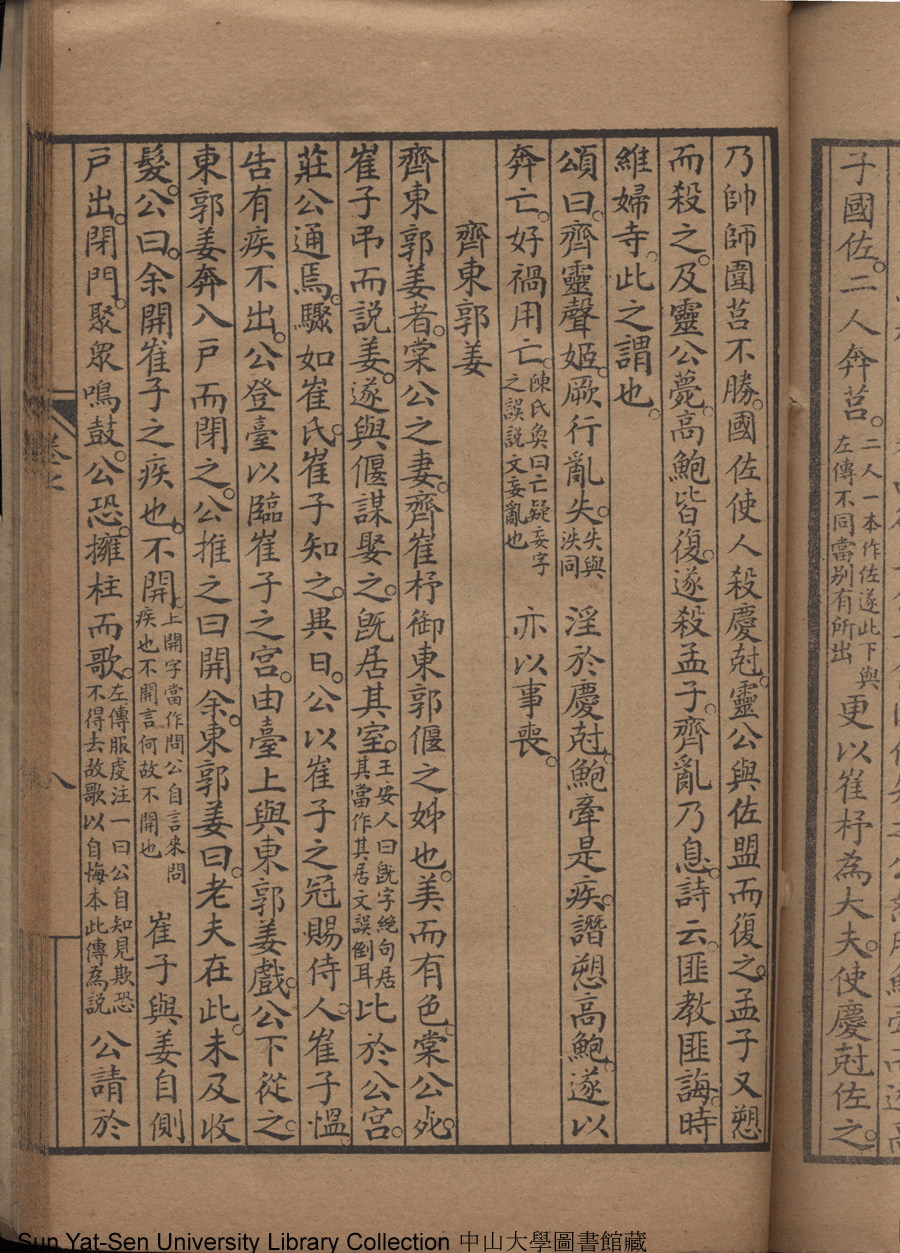 子國佐。二人奔莒。二人一本作佐遂此下與左傳不同當别有所出更以崔杼為大夫。使慶尅佐之。
乃帥師圍莒不勝。國佐使人殺慶尅。靈公與佐盟而復之。孟子又愬
而殺之。及靈公薨。高鮑皆復。遂殺孟子。齊亂乃息。詩云。匪教匪誨。時
維婦寺。此之謂也。
頌曰。齊靈聲姬。厥行亂失。失與泆同淫於慶尅。鮑牽是疾。譖愬高鮑。遂以
奔亡。好禍用亡。陳氏奐曰亡疑妄字之誤説文妄亂也亦以事喪。
齊東郭姜
齊東郭姜者。棠公之妻。齊崔杼御東郭偃之姊也。美而有色。棠公死。
崔子弔而説姜。遂與偃謀娶之。既居其室。王安人曰既字絶句居其當作其居文誤倒耳比於公宫。
莊公通焉。驟如崔氏。崔子知之。異日。公以崔子之冠賜侍人。崔子愠。
告有疾不出。公登臺以臨崔子之宫。由臺上與東郭姜戲。公下從之。
東郭姜奔入戸而閉之。公推之曰開余。東郭姜曰。老夫在此。未及收
髮。公曰。余開崔子之疾也。不開。上開字當作問公自言來問疾也不開言何故不開也崔子與姜自側
戸出。閉門。聚衆鳴鼓。公恐。擁柱而歌。左傳服虔注一曰公自知見欺恐不得去故歌以自悔本此傳為説公請於
八
Sun Yat-Sen University Library Collection 中山大學圖書館藏